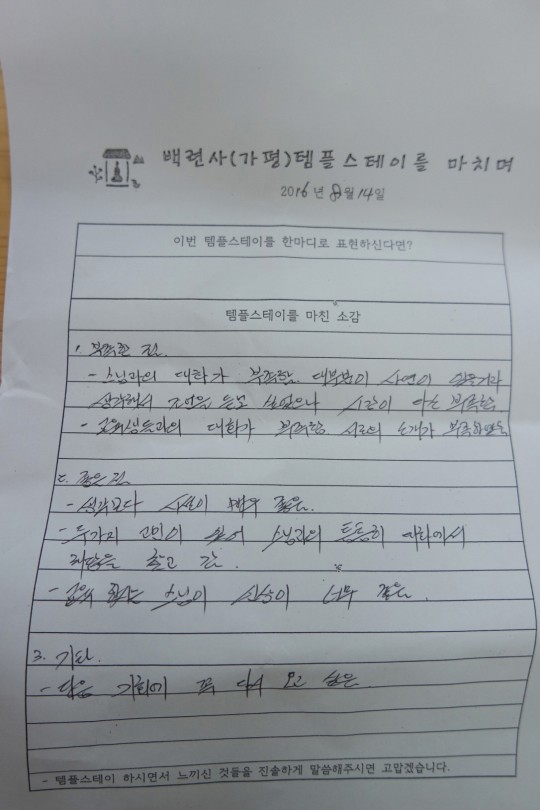 백련사(가평)템플스테이를 마치며
2016년 8월 14일
이번 템플스테이를 한마디로 표현하신다면?
템플스테이를 마친 소감
1. 부족한 점.
- 스님과의 대화가 부족함. 대부분이 사연이
생각해서 조언을 듣고 싶었으나 시간이 다소 부족함
- 대화가 부족함. 서로의 소개가
2. 좋은 점
- 생각보다 시설이 매우 좋음.
- 두가지 고민이 있어 스님과의
해답을 찾고 감.
- 스님이 인상이 너무 좋음.
3. 기타.
- 다음 기회에 꼭 다시 오고 싶은
- 템플스테이 하시면서 느끼신 것들을 진솔하게 말씀해주시면 고맙겠습니다.